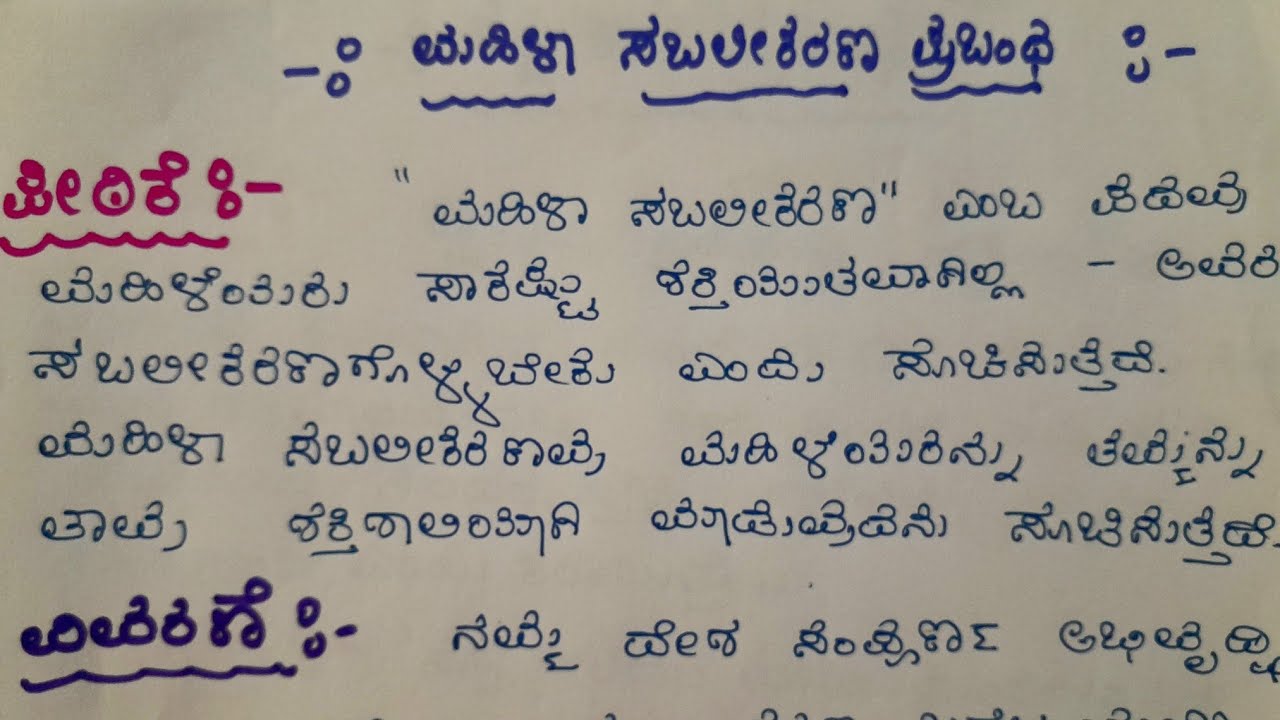 -: ಮಹಿಳಾ ಸಬಲೀಕರಣ ಪ್ರಬಂಧ :-
ಪೀಠಿಕೆ :- "ಮಹಿಳಾ ಸಬಲೀಕರಣ" ಎಂಬ ಪದವು
ಮಹಿಳೆಯರು ಸಾಕಷ್ಟು ಶಕ್ತಿಯುತವಾಗಿಲ್ಲ - ಅವರ
ಸಬಲೀಕರಣಗೊಳ್ಳಬೇಕು ಎಂದು ಸೂಚಿಸುತ್ತದೆ.
ಮಹಿಳಾ ಸಬಲೀಕರಣವು ಮಹಿಳೆಯರನ್ನು ತಮ್ಮನ್ನು
ತಾವು ಶಕ್ತಿಶಾಲಿಯಾಗಿ ಮಾಡುವುದನು ಸೂಚಿಸುತ್ತದೆ.
ವಿವರಣೆ :- ನಮ್ಮ ದೇಶ ಸಂಪೂರ್ಣ